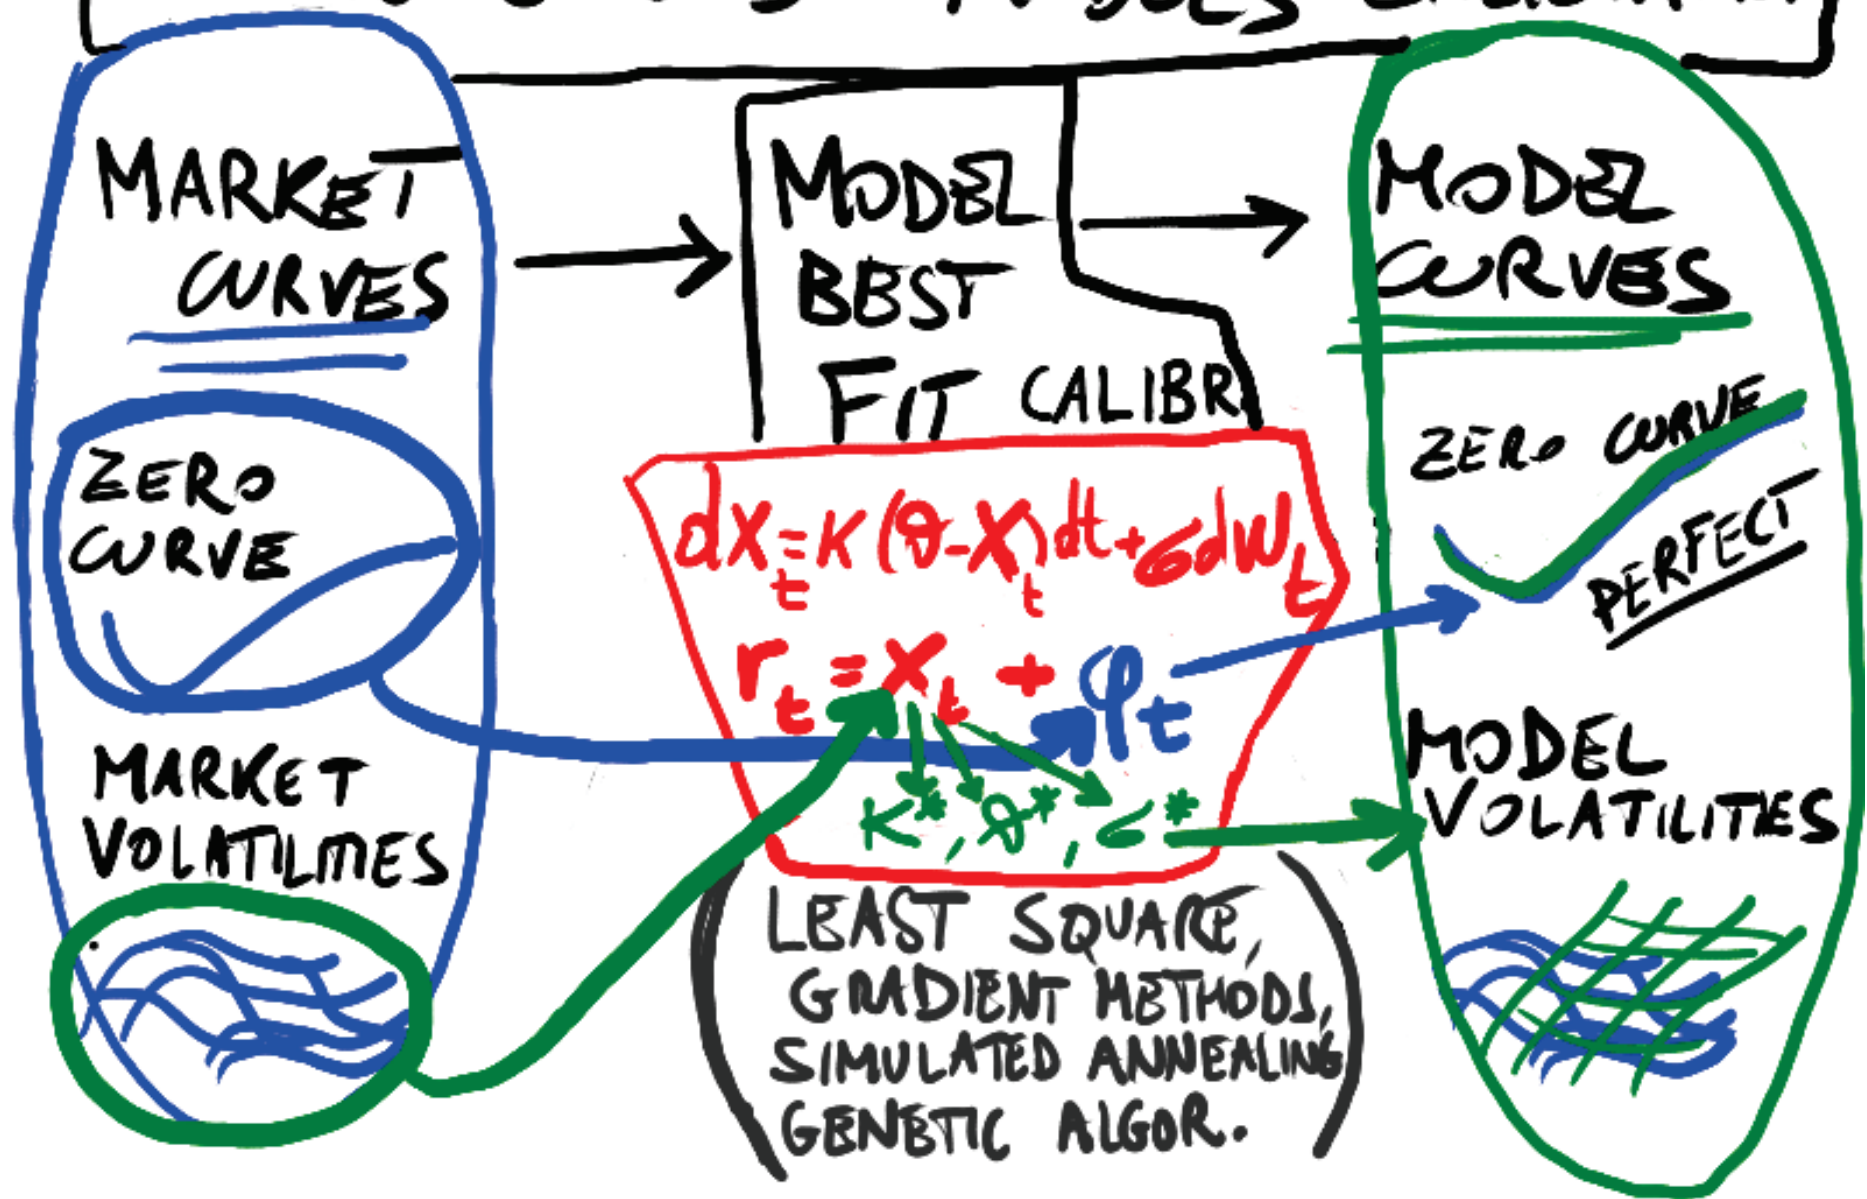 MARKET
CURVES
ZERO
CURVE
MARKET
VOLATILITIES
MODEL
BEST
FIT CALIBR.
dx_t = K(θ-X_t)dt + σdW_t
r_t = x_t + φ_t
K*, θ*, σ*
LEAST SQUARE,
GRADIENT METHODS,
SIMULATED ANNEALING
GENETIC ALGOR.
MODEL
CURVES
ZERO CURVE
PERFECT
MODEL
VOLATILITIES